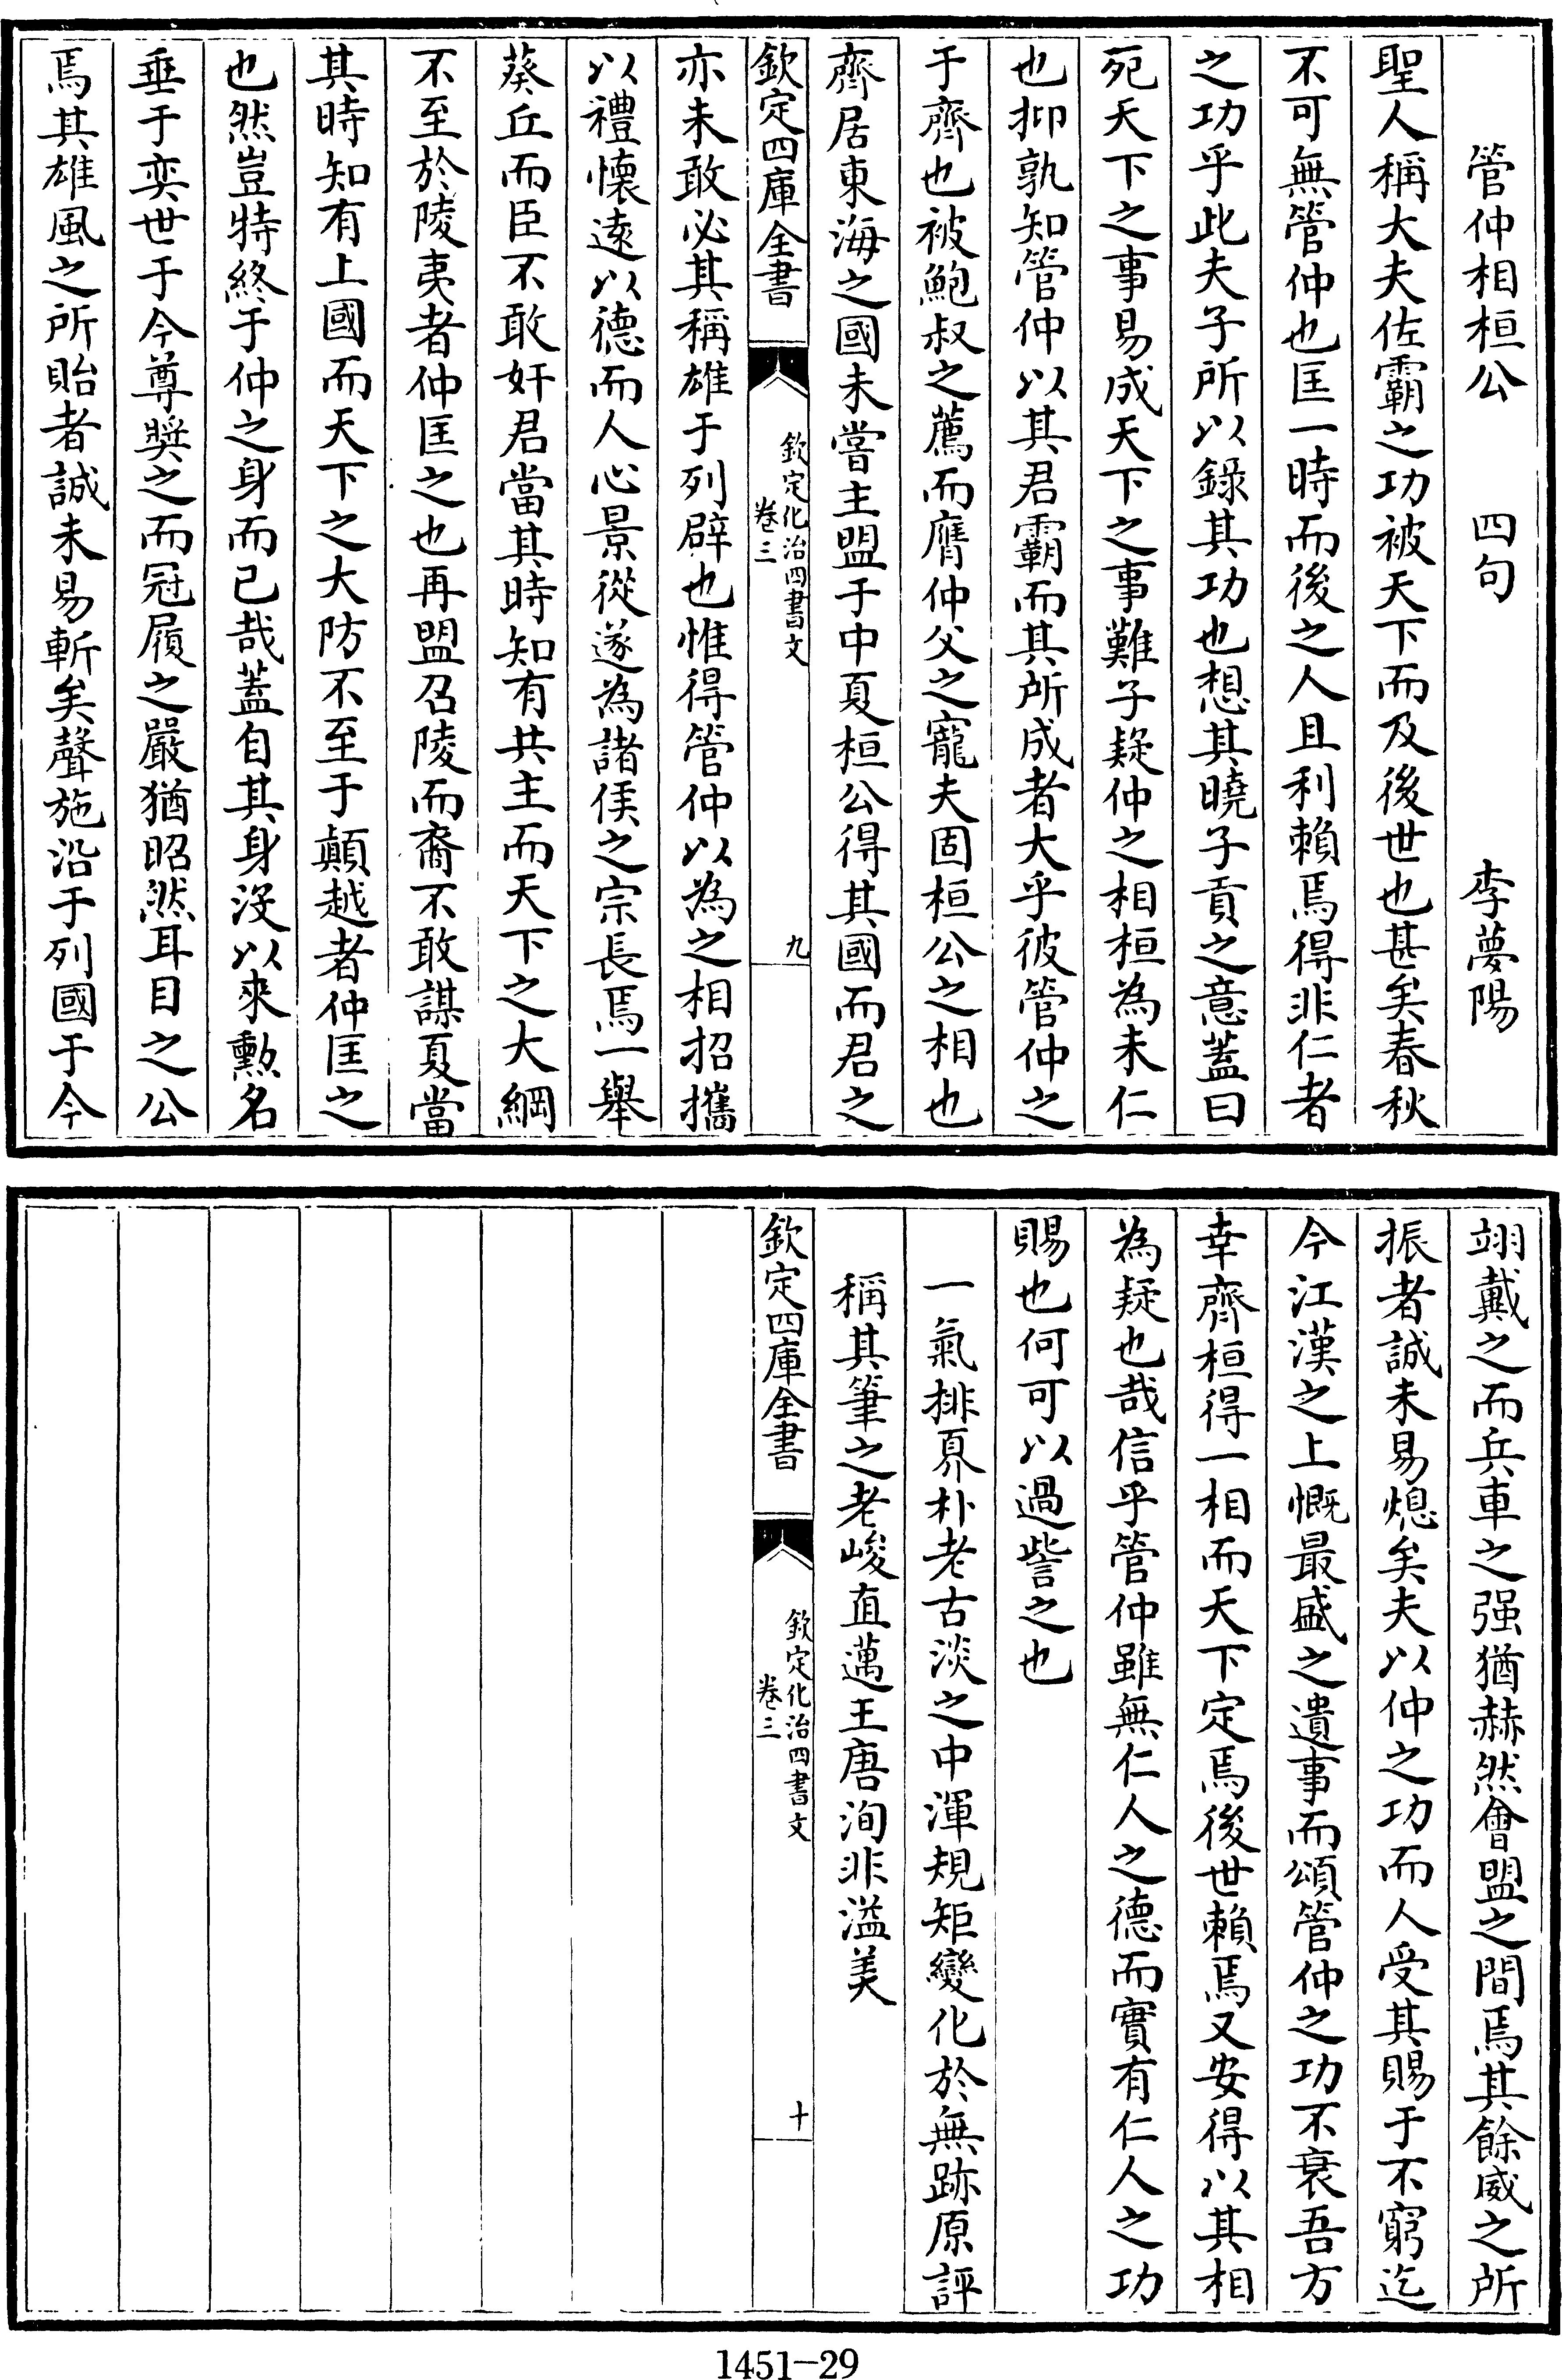 管仲相桓公　四句　李夢陽
聖人稱大夫佐霸之功被天下而及後世也甚矣春秋
不可無管仲也匡一時而後之人且利賴焉得非仁者
之功乎此夫子所以錄其功也想其曉子貢之意蓋曰
死天下之事易成天下之事難子疑仲之相桓為未仁
也抑孰知管仲以其君霸而其所成者大乎彼管仲之
于齊也被鮑叔之薦而膺仲父之寵夫固桓公之相也
齊居東海之國未嘗主盟于中夏桓公得其國而君之
欽定四庫全書　欽定化治四書文　卷三　九
亦未敢必其稱雄于列辟也惟得管仲以為之相招攜
以禮懷遠以德而人心景從遂為諸侯之宗長焉一舉
葵丘而臣不敢奸君當其時知有共主而天下之大綱
不至於陵夷者仲匡之也再盟召陵而裔不敢謀夏當
其時知有上國而天下之大防不至于顛越者仲匡之
也然豈特終于仲之身而已哉蓋自其身沒以來勲名
垂于奕世于今尊奬之而冠履之嚴猶昭然耳目之公
焉其雄風之所貽者誠未易斬矣聲施沿于列國于今
翊戴之而兵車之强猶赫然會盟之間焉其餘威之所
振者誠未易熄矣夫以仲之功而人受其賜于不窮迄
今江漢之上慨最盛之遺事而頌管仲之功不衰吾方
幸齊桓得一相而天下定焉後世賴焉又安得以其相
為疑也哉信乎管仲雖無仁人之德而實有仁人之功
賜也何可以過訾之也
一氣排奡朴老古淡之中渾規矩變化於無跡原評
稱其筆之老峻直邁王唐洵非溢美
欽定四庫全書　欽定化治四書文　卷三　十
1451—29